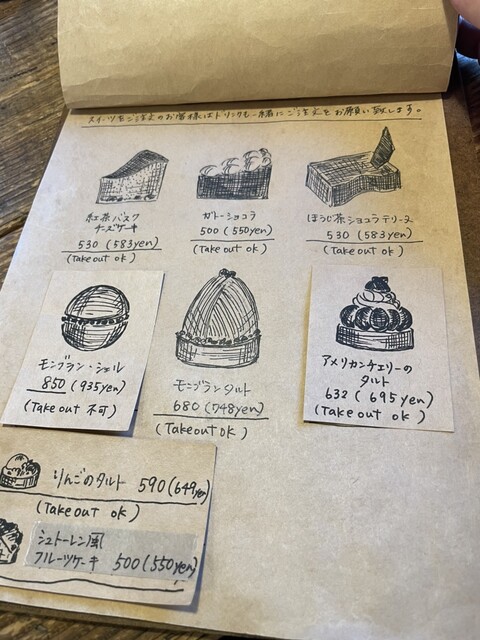 スイーツをご注文のお客様はドリンクも一緒にご注文をお願い致します。
紅茶バスク
チーズケーキ
530 (583yen)
(Take out ok)
ガトーショコラ
500 (550yen)
(Take out ok)
ほうじ茶ショコラテリーヌ
530 (583yen)
(Take out ok)
モンブラン・シェル
850 (935yen)
(Take out 不可)
モンブランタルト
680 (748yen)
(Take out ok)
アメリカンチェリーの
タルト
632 (695yen)
(Take out ok)
りんごのタルト 590 (649yen)
(Take out ok)
シュトーレン風
フルーツケーキ 500 (550yen)